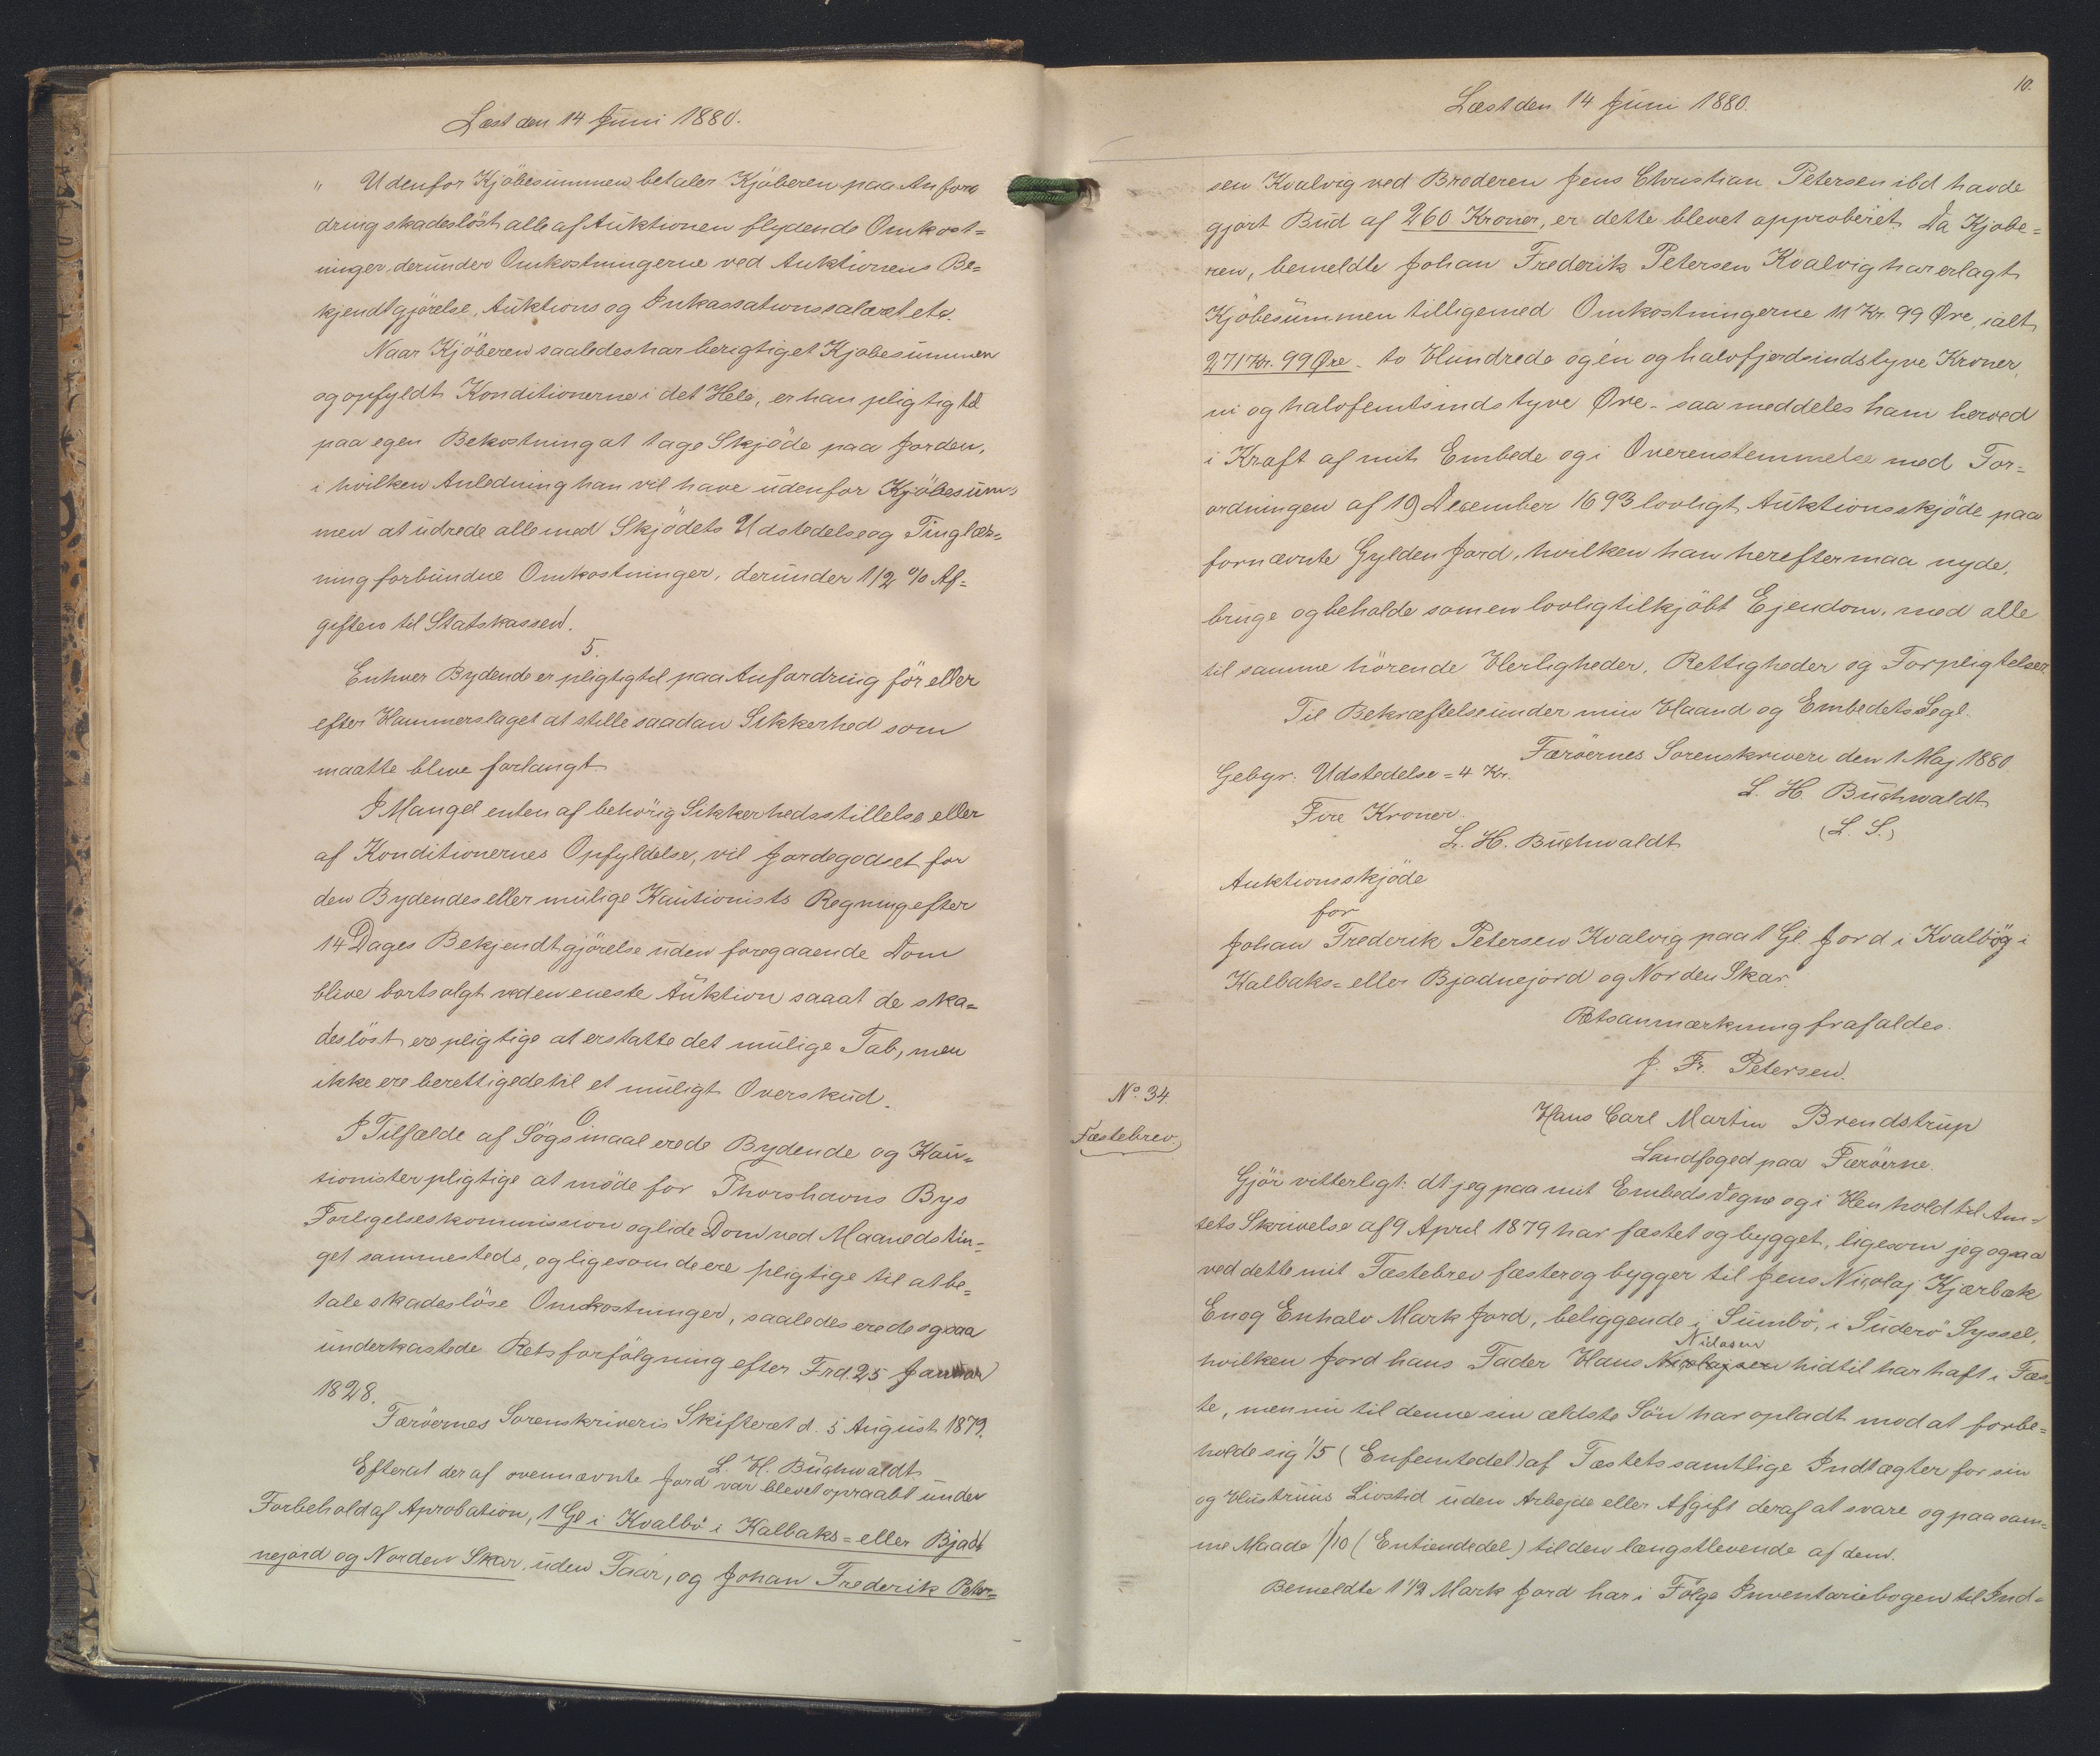 Læst den 14 Juni 1880.
" Udenfor Kjöbesummen betaler Kjöberen paa Anfor-
dring skadeslöst alle af Auktionen flydende Omkost=
ninger, derunder Omkostningerne ved Auktionens Be=
kjendtgjörelse, Auktions og Inkassationssalæret etc.
Naar Kjöberen saaledes har berigtiget Kjøbesummen
og opfyldt Konditionerne i det Hele, er han pligtig til
paa egen Bekostning at tage Skjöde paa Jorden,
i hvilken Anledning han vil have udenfor Kjöbesum=
men at udrede alle med Skjödets Udstedelse og Tinglæs=
ning forbundne Omkostninger, derunder 1/2 % Af=
giften til Statskassen.
5.
Enhver Bydende er pligtig til paa Anfordring för eller
efter Hammerslaget at stille saadan Sikkerhed som
maatte blive forlangt.
I Mangel enten af behörig Sikkerhedsstillelse eller
af Konditionernes Opfyldelse, vil Jordegodset for
den Bydendes eller mulige Kautionists Regning efter
14 Dages Bekjendtgjörelse uden foregaaende Dom
blive bortsolgt ved en eneste Auktion saaat de ska=
deslöst ere pligtige at erstatte det mulige Tab, men
ikke ere berettigede til et muligt Overskud.
I Tilfælde af Sögsmaal ere de Bydende og Kau=
tionister pligtige at möde for Thorshavns Bys
Forligelseskommission og lide Dom ved Maanedstin=
get sammesteds, og ligesom de ere pligtige til at be=
tale skadeslöse Omkostninger, saaledes ere de ogsaa
underkastede Retsforfölgning efter Frd. 25 Januar
1828.
Færöernes Sorenskriveris Skifteret d. 5 August 1879.
L. H. Buchwaldt.
Efterat der af ovennævnte Jord var blevet opraabt under
Forbehold af Aprobation, 1 Gl i Kvalbö i Kalbaks= eller Bjad
nejord og Norden Skar, uden Faar, og Johan Frederik Peter=
10.
Læst den 14 Juni 1880.
sen Kvalvig ved Broderen Jens Christian Petersen ibd havde
gjort Bud af 260 Kroner, er dette blevet approberet. Da Kjøbe=
ren, bemeldte Johan Frederik Petersen Kvalvig har erlagt
Kjöbesummen tilligemed Omkostningerne 11 Kr. 99 Øre, ialt
271 Kr. 99 Øre - to Hundrede og én og halvfjerdsindstyve Kroner,
ni og halvfemtsindstyve Øre - saa meddeles ham herved
i Kraft af mit Embede og i Overenstemmelse med For=
ordningen af 19 December 1693 lovligt Auktionsskjöde paa
fornævnte Gylden Jord, hvilken han herefter maa nyde,
bruge og beholde som en lovlig tilkjöbt Ejendom, med alle
til samme hörende Herligheder, Rettigheder og Forpligtelser.
Til Bekræftelse under min Haand og Embedets Segl.
Færöernes Sorenskriveri den 1 Maj 1880
Gebyr: Udstedelse = 4 Kr.
L. H. Buchwaldt
Fire Kroner.
(L. S.)
L. H. Buchwaldt
Auktionsskjöde
for
Johan Frederik Petersen Kvalvig paa 1 Gl. Jord i Kvalbög i
Kalbaks= eller Bjadnejord og Norden Skar.
Retsanmærkning frafaldes.
J. Fr. Petersen.
No. 34.
Fæstebrev.
Hans Carl Martin Brendstrup
Landfoged paa Færöerne.
Gjör vitterligt: at jeg paa mit Embeds Vegne og i Henhold til Am=
tets Skrivelse af 9 April 1879 har fæstet og bygget, ligesom jeg ogsaa
ved dette mit Fæstebrev fæster og bygger til Jens Nicolaj Kjærbæk
En og Enhalv Mark Jord, beliggende i Sumbö, i Suderö Syssel,
Nidasen
hvilken Jord hans Fader Hans Nicolajsen hidtil har haft i Fæs=
te, men nu til denne sin ældste Sön har opladt mod at forbe=
holde sig 1/5 (Enfemtedel) af Fæstets samtlige Indtægter for sin
og Hustruus Livstid uden Arbejde eller Afgift deraf at svare og paa sam=
me Maade 1/10 (Entiendedel) til den længstlevende af dem.
Bemeldte 1 1/2 Mark Jord har i Fölge Inventariebogen til Ind=